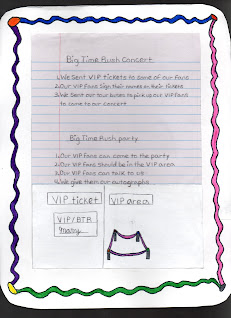 Big Time Rush Concert
1. We Sent VIP tickets to some of our fans
2. Our VIP Fans sign their names on their tickets
3. We Sent our tour buses to pick us our VIP fans
to come to our concert
Big Time Rush party
1. Our VIP fans can come to the party
2. Our VIP Fans should be in the VIP area
3. Our VIP Fans can talk to us
4. We give them our autographs
VIP ticket
VIP area
VIP/BTR